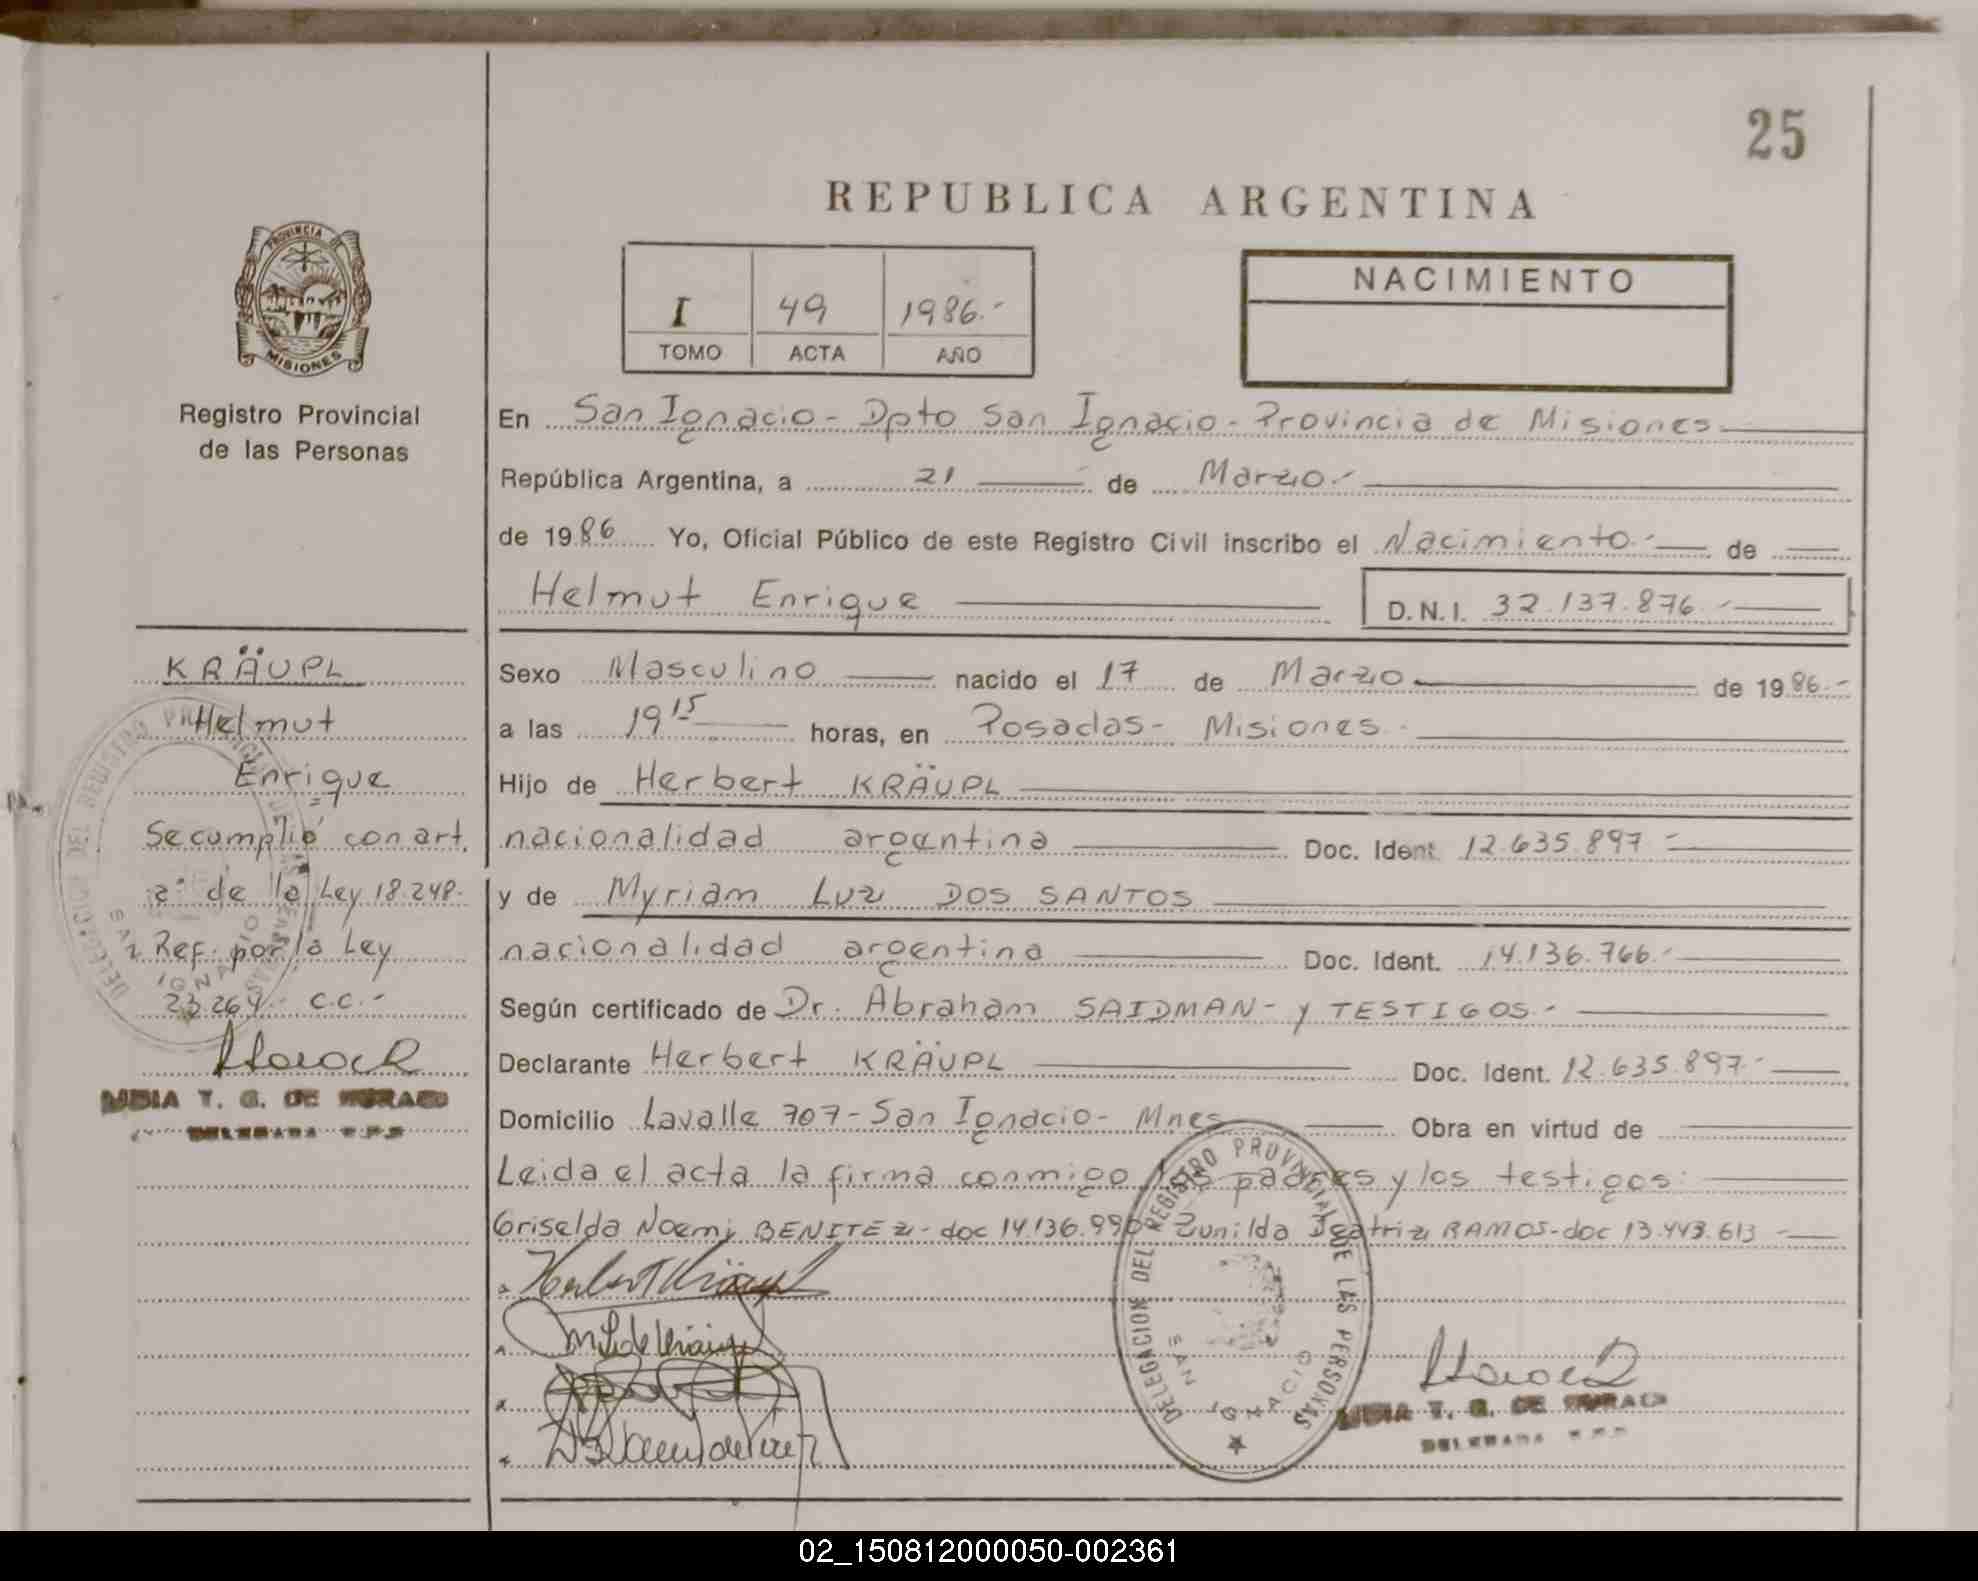 25
REPUBLICA ARGENTINA
PROVINCIA DE
MISIONES
Registro Provincial
de las Personas
I 49 1986.-
TOMO ACTA AÑO
NACIMIENTO
En San Ignacio - Dpto San Ignacio - Provincia de Misiones
República Argentina, a 21 de Marzo.-
de 1986 Yo, Oficial Público de este Registro Civil inscribo el Nacimiento.- de
Helmut Enrique D.N.I. 32.137.876.-
KRÄUPL
Helmut
Enrique
Se cumplió con art.
2° de la Ley 18.248.
Ref. por la Ley
23.264.- c.c.-
T. G. DE
Sexo Masculino nacido el 17 de Marzo de 1986.-
a las 19 15 horas, en Posadas - Misiones.-
Hijo de Herbert KRÄUPL
nacionalidad argentina Doc. Ident. 12.635.897.-
y de Myriam Luz DOS SANTOS
nacionalidad argentina Doc. Ident. 14.136.766.-
Según certificado de Dr. Abraham SAIDMAN - y TESTIGOS.-
Declarante Herbert KRÄUPL Doc. Ident. 12.635.897.-
Domicilio Lavalle 707 - San Ignacio - Mnes Obra en virtud de
Leida el acta la firma conmigo los padres y los testigos:
Griselda Noemi BENITEZ - doc 14.136.990 Zunilda Beatriz RAMOS - doc 13.443.613
DELEGACION DEL REGISTRO PROVINCIAL DE LAS PERSONAS
SAN IGNACIO
T. G. DE
02_150812000050-002361